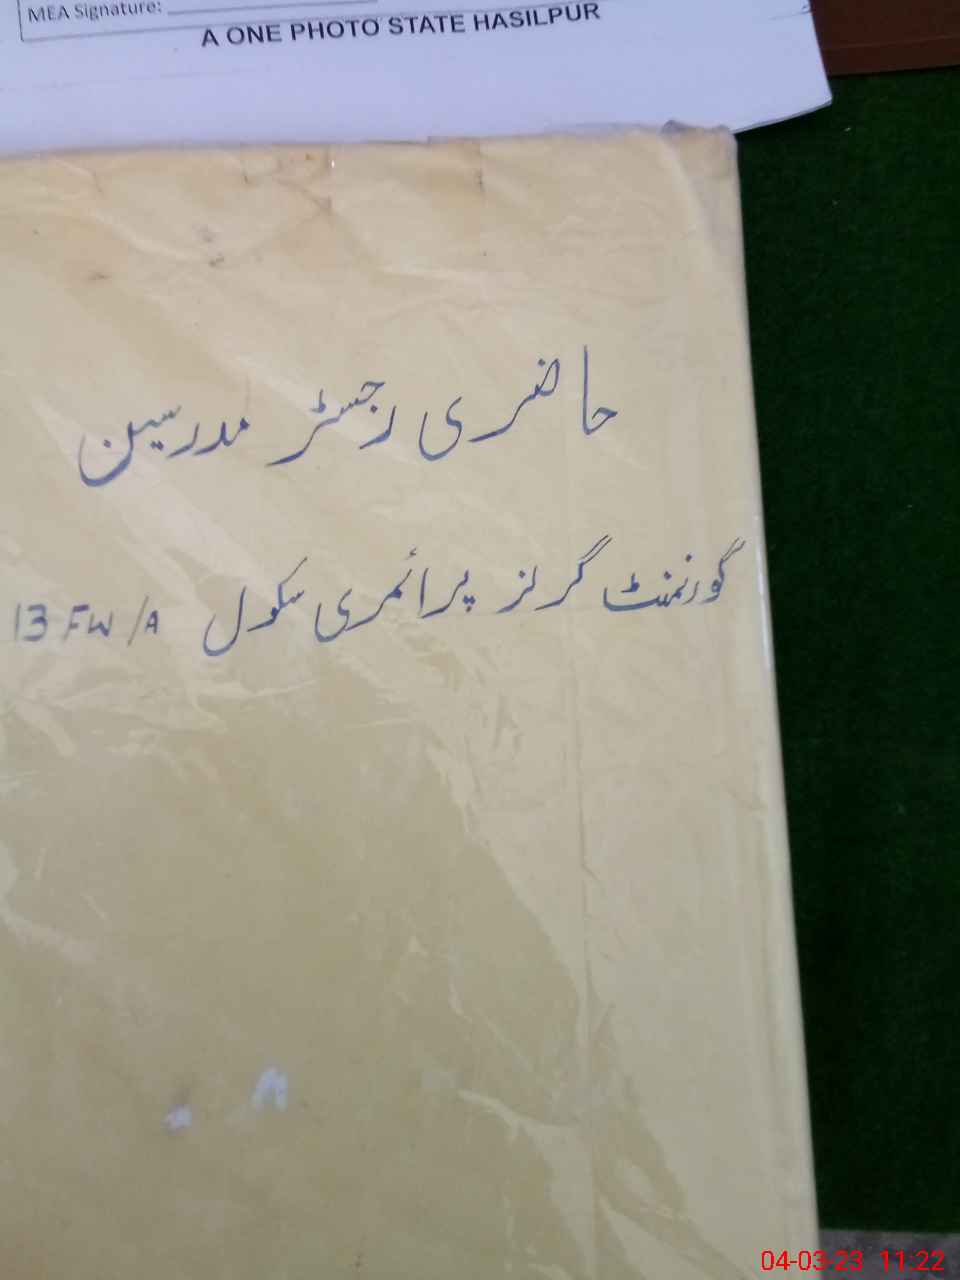 MEA Signature:
A ONE PHOTO STATE HASILPUR
حاضری رجسٹر مدرسین
گورنمنٹ گرلز پرائمری سکول 13 FW/A
04-03-23 11:22